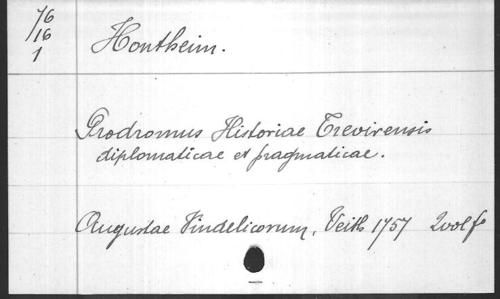 76
16
1
Hontheim.
Prodromus Historiae Trevirensis
diplomaticae et pragmaticae.
Augustae Vindelicorum, Veith 1757 2 vol fo